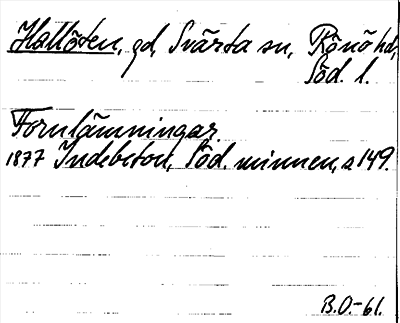 Hallöten, gd, Svärta sn, Rönö hd,
Söd. l.
Fornlämningar
1877 Indebetou, Söd. minnen, s 149.
B.O.-61.